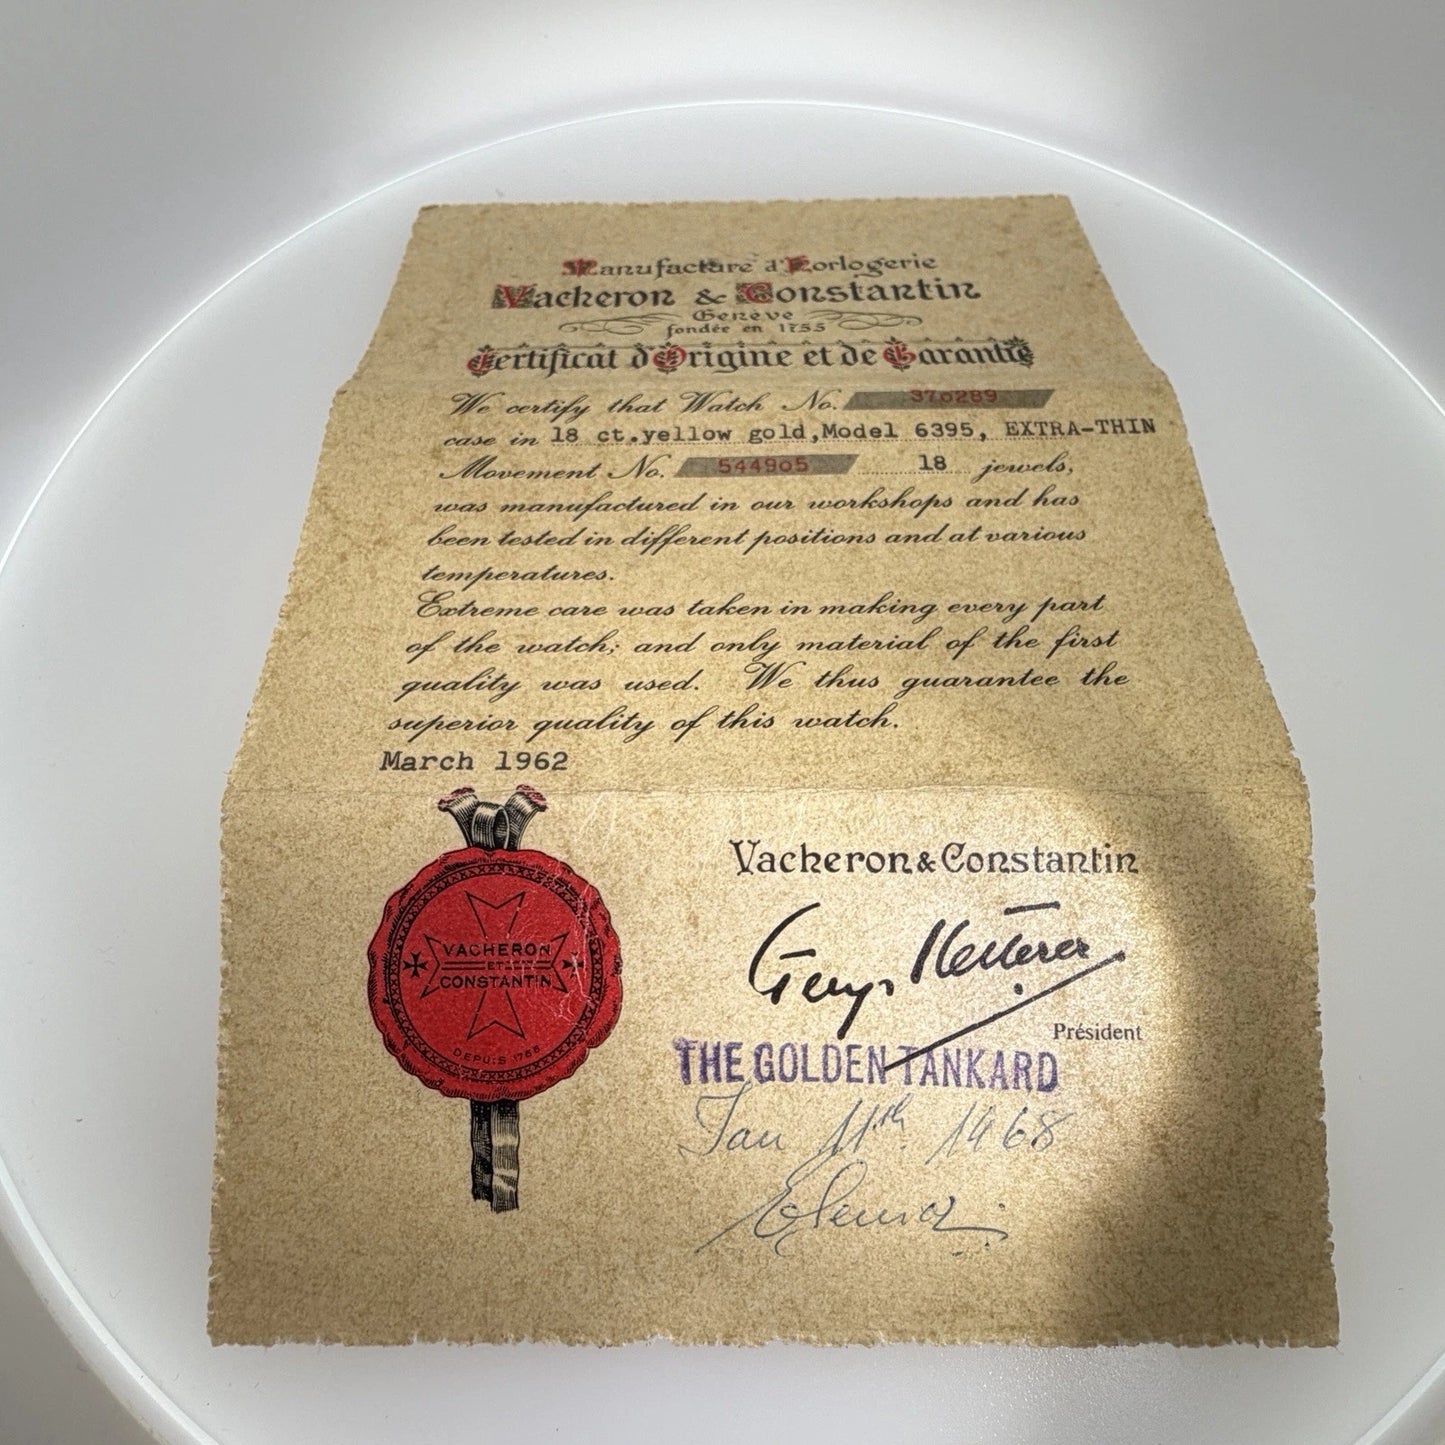 Manufacture d'Horlogerie
Vacheron & Constantin
Genève
fondée en 1755
Certificat d'Origine et de Garantie
We certify that Watch No. 370289
case in 18 ct.yellow gold,Model 6395, EXTRA-THIN
Movement No. 544905 18 jewels,
was manufactured in our workshops and has
been tested in different positions and at various
temperatures.
Extreme care was taken in making every part
of the watch; and only material of the first
quality was used. We thus guarantee the
superior quality of this watch.
March 1962
VACHERON
ET
CONSTANTIN
DEPUIS 1755
Vacheron & Constantin
Georges Ketterer
Président
THE GOLDEN TANKARD
Jan 11th. 1968